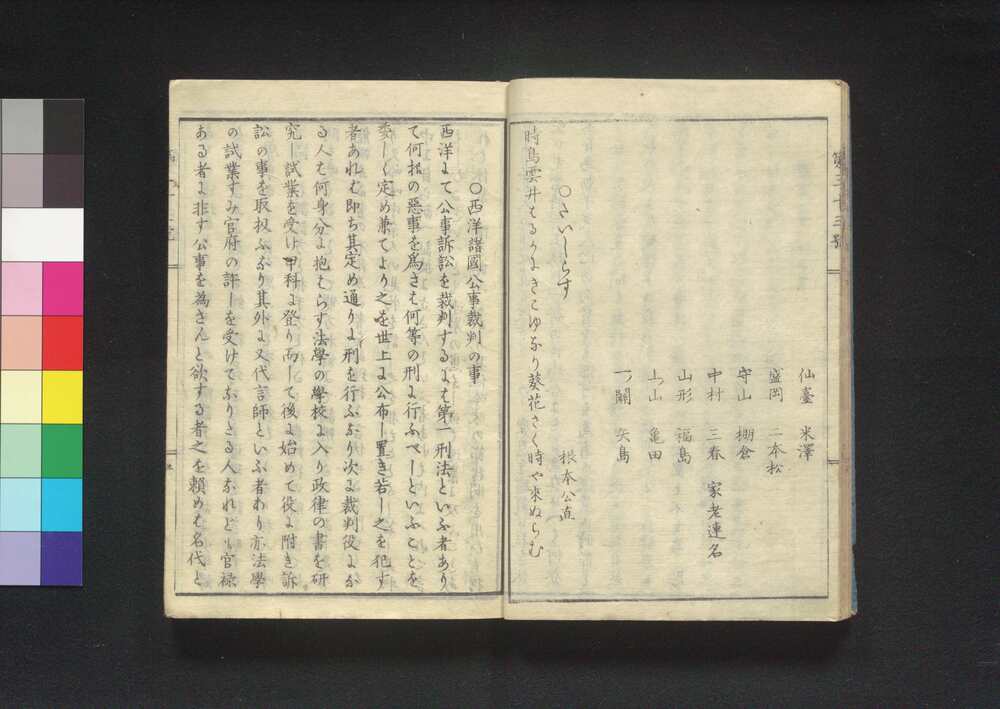 仙臺　米澤
盛岡　二本松
守山　棚倉
中村　三春　家老連名
山形　福島
上山　亀田
一ノ關　矢島
○さいしらす
根本公直
時鳥雲井はるかにきこゆなり葵花さく時や来ぬらむ
○西洋諸國公事裁判の事
西洋にて公事訴訟を裁判するには第一刑法といふ者あり
て何松の惡事を爲さは何等の刑に行ふべしといふことを
委しく定め兼てより之を世上に公布し置き若し之を犯す
者あれは即ち其定め通りに刑を行ふなり次に裁判役にな
る人は何身分に抱はらす法學の學校に入り政律の書を研
究し試業を受け甲科に登り而して後に始めて役に附き訴
訟の事を取扱ふなり其外に又代言師といふ者あり亦法學
の試業すみ官府の許しを受けてなりたる人なれども官禄
ある者に非す公事を為さんと欲する者之を頼めは名代と